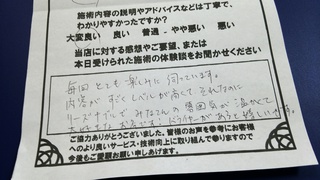 施術内容の説明やアドバイスなどは丁寧で、
わかりやすかったですか？
大変良い 良い 普通 やや悪い 悪い
当店に対する感想やご要望、または
本日受けられた施術の体験談をお聞かせください
毎回とても楽しみに伺っています。
内容がすごくレベルが高くてそれなのに
リーズナブルでみなさんの雰囲気が温かくて
大好きなお店です。ドライヤーがあると嬉しいです。
ご協力ありがとうございました。皆様のお声を参考にお客様
へのより良いサービス・技術向上に取り組んで参りますので
今後もご愛顧お願い申し上げます。